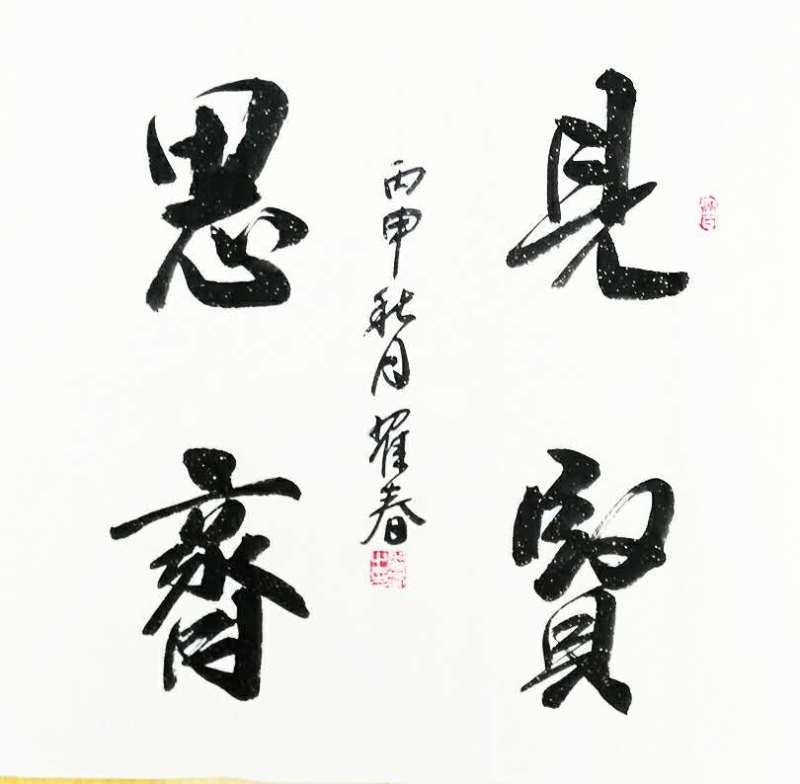 見賢
思齊
丙申秋月耀春